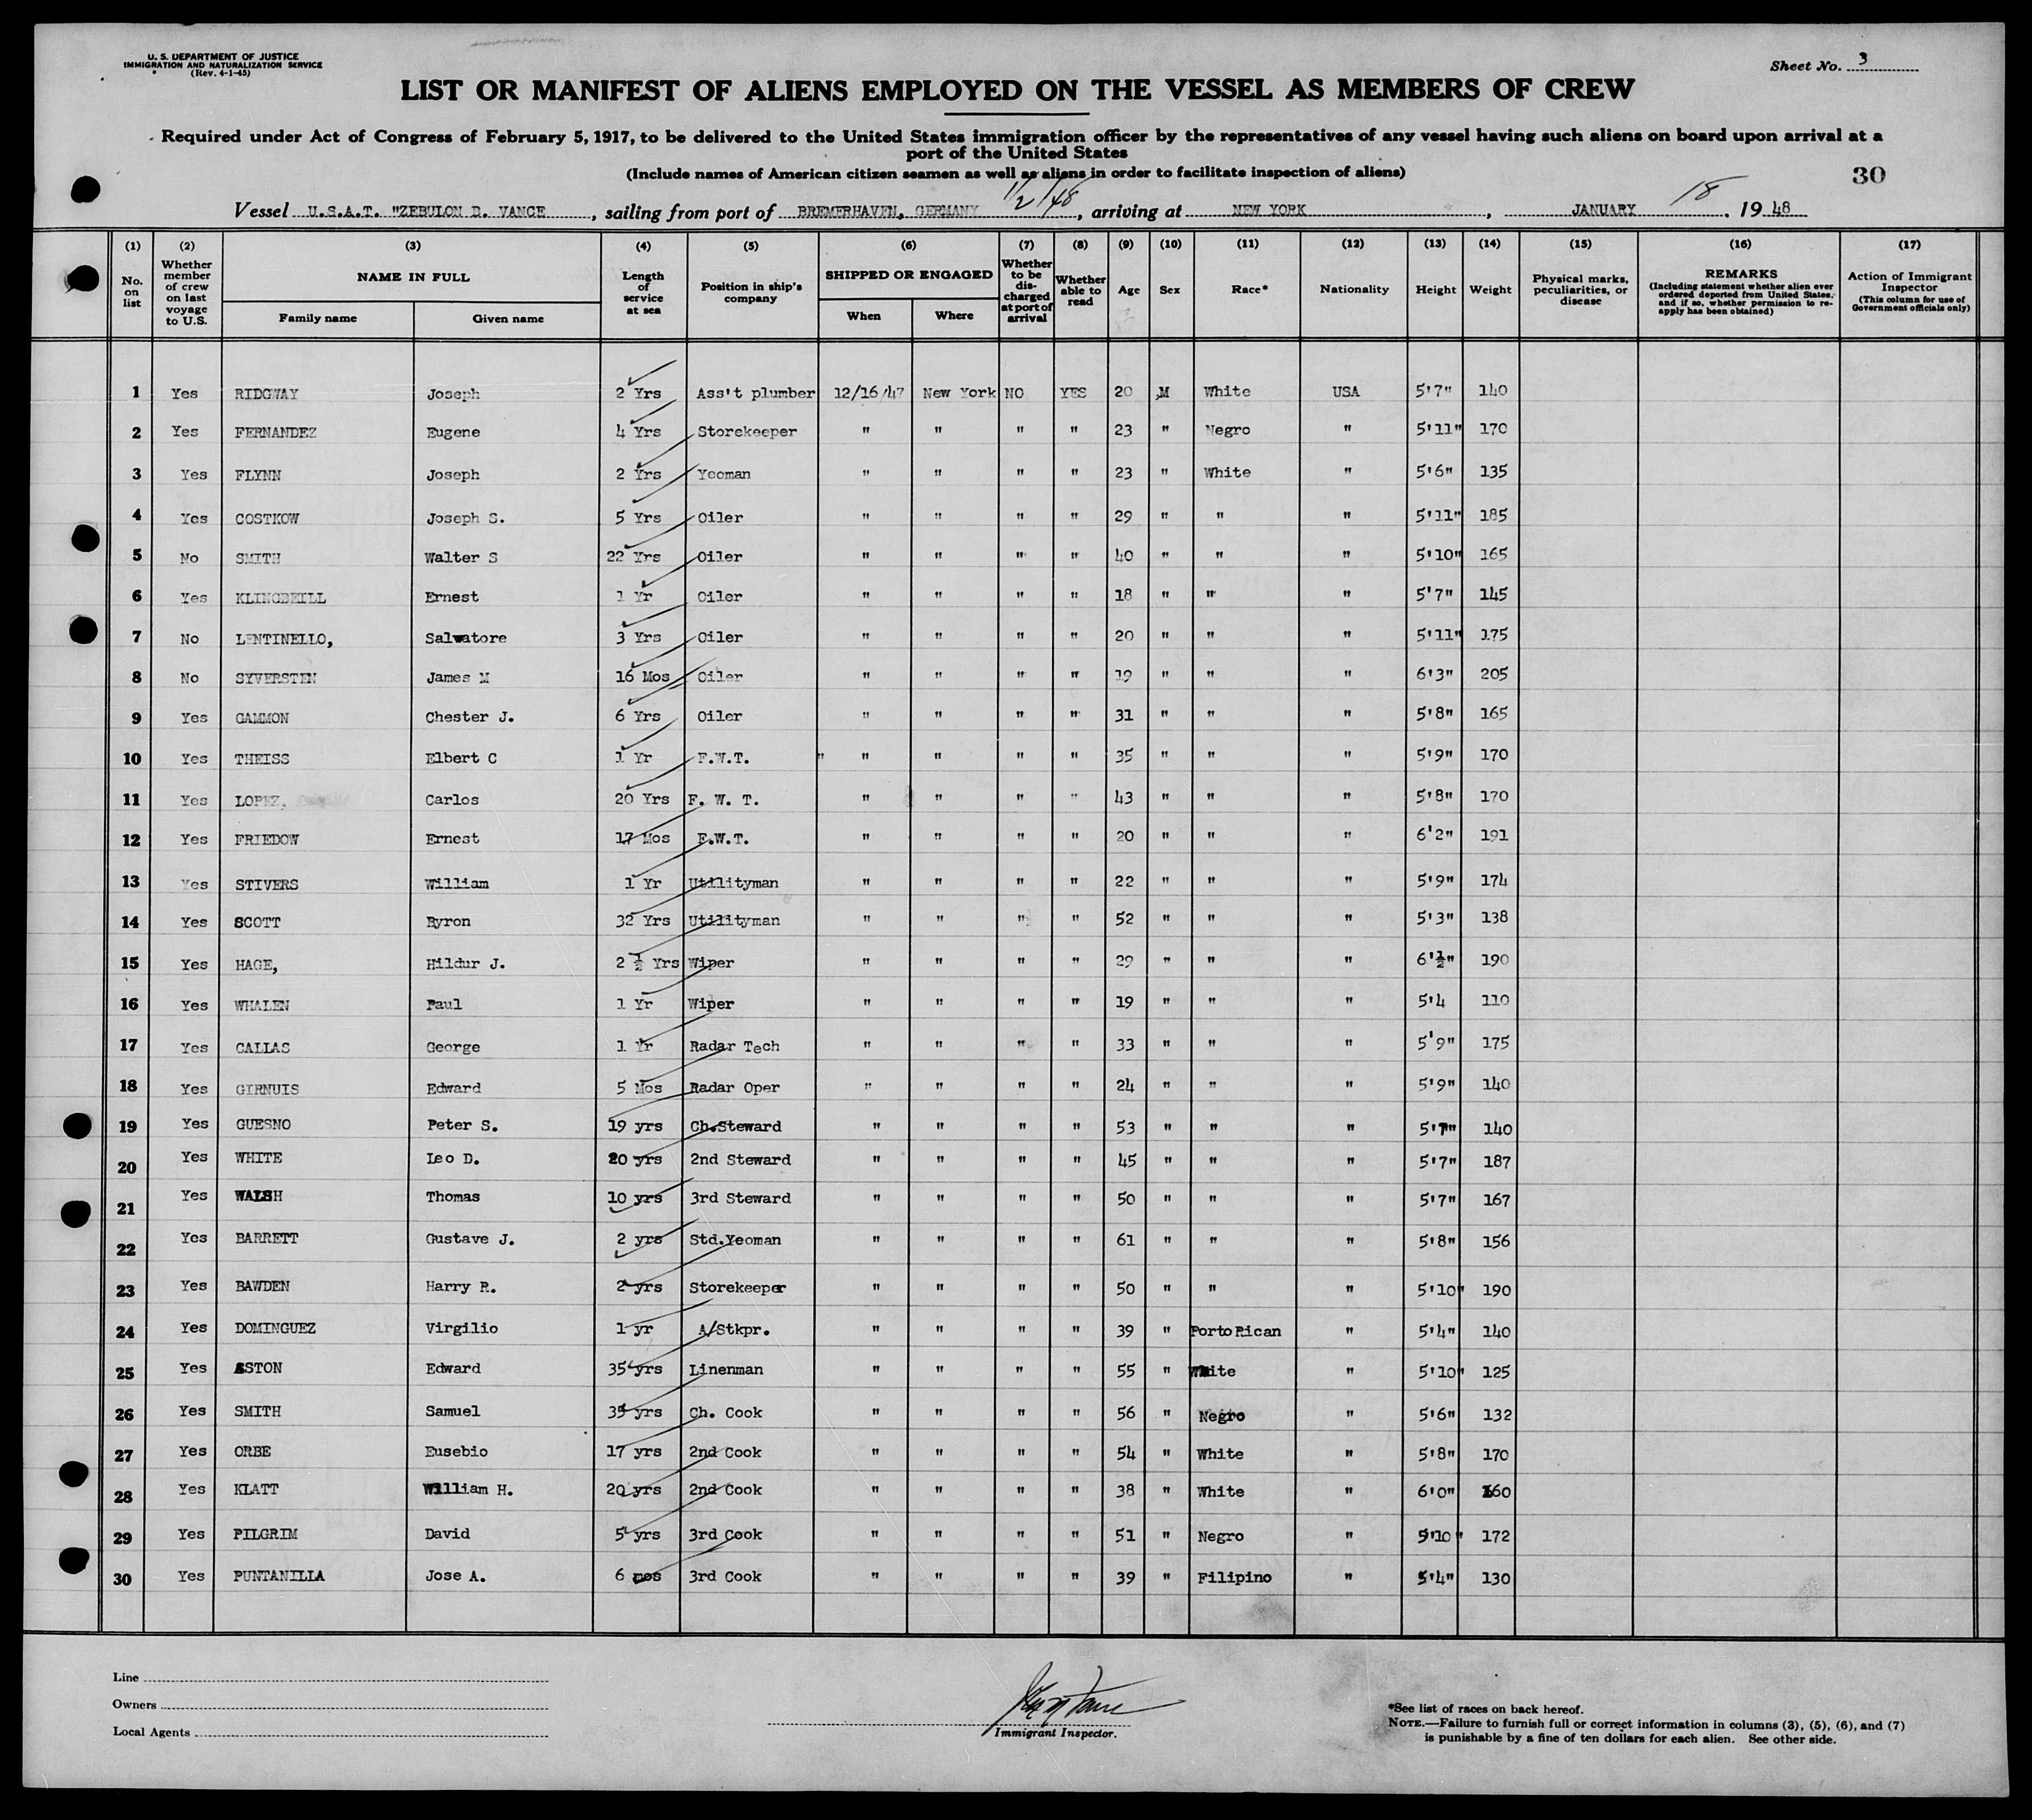 U. S. DEPARTMENT OF JUSTICE
IMMIGRATION AND NATURALIZATION SERVICE
(Rev. 4-1-45)
Sheet No. 3
LIST OR MANIFEST OF ALIENS EMPLOYED ON THE VESSEL AS MEMBERS OF CREW
Required under Act of Congress of February 5, 1917, to be delivered to the United States immigration officer by the representatives of any vessel having such aliens on board upon arrival at a
port of the United States
(Include names of American citizen seamen as well as aliens in order to facilitate inspection of aliens)
30
Vessel U.S.A.T. "ZEBULON B. VANCE, sailing from port of BREMERHAVEN, GERMANY 1/2/48, arriving at NEW YORK, JANUARY 18, 1948
(1) (2) (3) (4) (5) (6) (7) (8) (9) (10) (11) (12) (13) (14) (15) (16) (17)
No. on list | Whether member of crew on last voyage to U.S. | NAME IN FULL Family name Given name | Length of service at sea | Position in ship's company | SHIPPED OR ENGAGED When Where | Whether to be discharged at port of arrival | Whether able to read | Age | Sex | Race* | Nationality | Height | Weight | Physical marks, peculiarities, or disease | REMARKS (Including statement whether alien ever ordered deported from United States, and if so, whether permission to re-apply has been obtained) | Action of Immigrant Inspector (This column for use of Government officials only)
1 Yes RIDGWAY Joseph 2 Yrs Ass't plumber 12/16/47 New York NO YES 20 M White USA 5'7" 140
2 Yes FERNANDEZ Eugene 4 Yrs Storekeeper " " " " 23 " Negro " 5'11" 170
3 Yes FLYNN Joseph 2 Yrs Yeoman " " " " 23 " White " 5'6" 135
4 Yes COSTKOW Joseph S. 5 Yrs Oiler " " " " 29 " " " 5'11" 185
5 No SMITH Walter S 22 Yrs Oiler " " " " 40 " " " 5'10" 165
6 Yes KLINGBEILL Ernest 1 Yr Oiler " " " " 18 " " " 5'7" 145
7 No LENTINELLO, Salvatore 3 Yrs Oiler " " " " 20 " " " 5'11" 175
8 No SYVERSTEN James M 16 Mos Oiler " " " " 19 " " " 6'3" 205
9 Yes GAMMON Chester J. 6 Yrs Oiler " " " " 31 " " " 5'8" 165
10 Yes THEISS Elbert C 1 Yr F.W.T. " " " " " 35 " " " 5'9" 170
11 Yes LOPEZ, Carlos 20 Yrs F. W. T. " " " " 43 " " " 5'8" 170
12 Yes FRIEDOW Ernest 17 Mos F.W.T. " " " " 20 " " " 6'2" 191
13 Yes STIVERS William 1 Yr Utilityman " " " " 22 " " " 5'9" 174
14 Yes SCOTT Byron 32 Yrs Utilityman " " " " 52 " " " 5'3" 138
15 Yes HAGE, Hildur J. 2 ½ Yrs Wiper " " " " 29 " " " 6'½" 190
16 Yes WHALEN Paul 1 Yr Wiper " " " " 19 " " " 5'4 110
17 Yes CALLAS George 1 Yr Radar Tech " " " " 33 " " " 5'9" 175
18 Yes GIRNUIS Edward 5 Mos Radar Oper " " " " 24 " " " 5'9" 140
19 Yes GUESNO Peter S. 19 yrs Ch.Steward " " " " 53 " " " 5'7" 140
20 Yes WHITE Leo D. 20 yrs 2nd Steward " " " " 45 " " " 5'7" 187
21 Yes WALSH Thomas 10 yrs 3rd Steward " " " " 50 " " " 5'7" 167
22 Yes BARRETT Gustave J. 2 yrs Std.Yeoman " " " " 61 " " " 5'8" 156
23 Yes BAWDEN Harry R. 2 yrs Storekeeper " " " " 50 " " " 5'10" 190
24 Yes DOMINGUEZ Virgilio 1 yr A/Stkpr. " " " " 39 " Porto Rican " 5'4" 140
25 Yes ASTON Edward 35 yrs Linenman " " " " 55 " White " 5'10" 125
26 Yes SMITH Samuel 35 yrs Ch. Cook " " " " 56 " Negro " 5'6" 132
27 Yes ORBE Eusebio 17 yrs 2nd Cook " " " " 54 " White " 5'8" 170
28 Yes KLATT William H. 20 yrs 2nd Cook " " " " 38 " White " 6'0" 160
29 Yes PILGRIM David 5 yrs 3rd Cook " " " " 51 " Negro " 5'10" 172
30 Yes PUNTANILLA Jose A. 6 mos 3rd Cook " " " " 39 " Filipino " 5'4" 130
Line
Owners
Local Agents
Immigrant Inspector.
*See list of races on back hereof.
NOTE.—Failure to furnish full or correct information in columns (3), (5), (6), and (7)
is punishable by a fine of ten dollars for each alien. See other side.